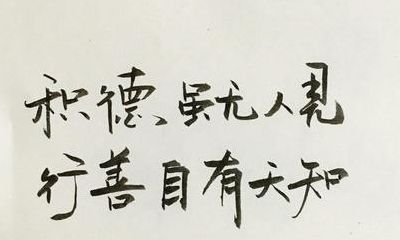 积德虽无人見
行善自有天知